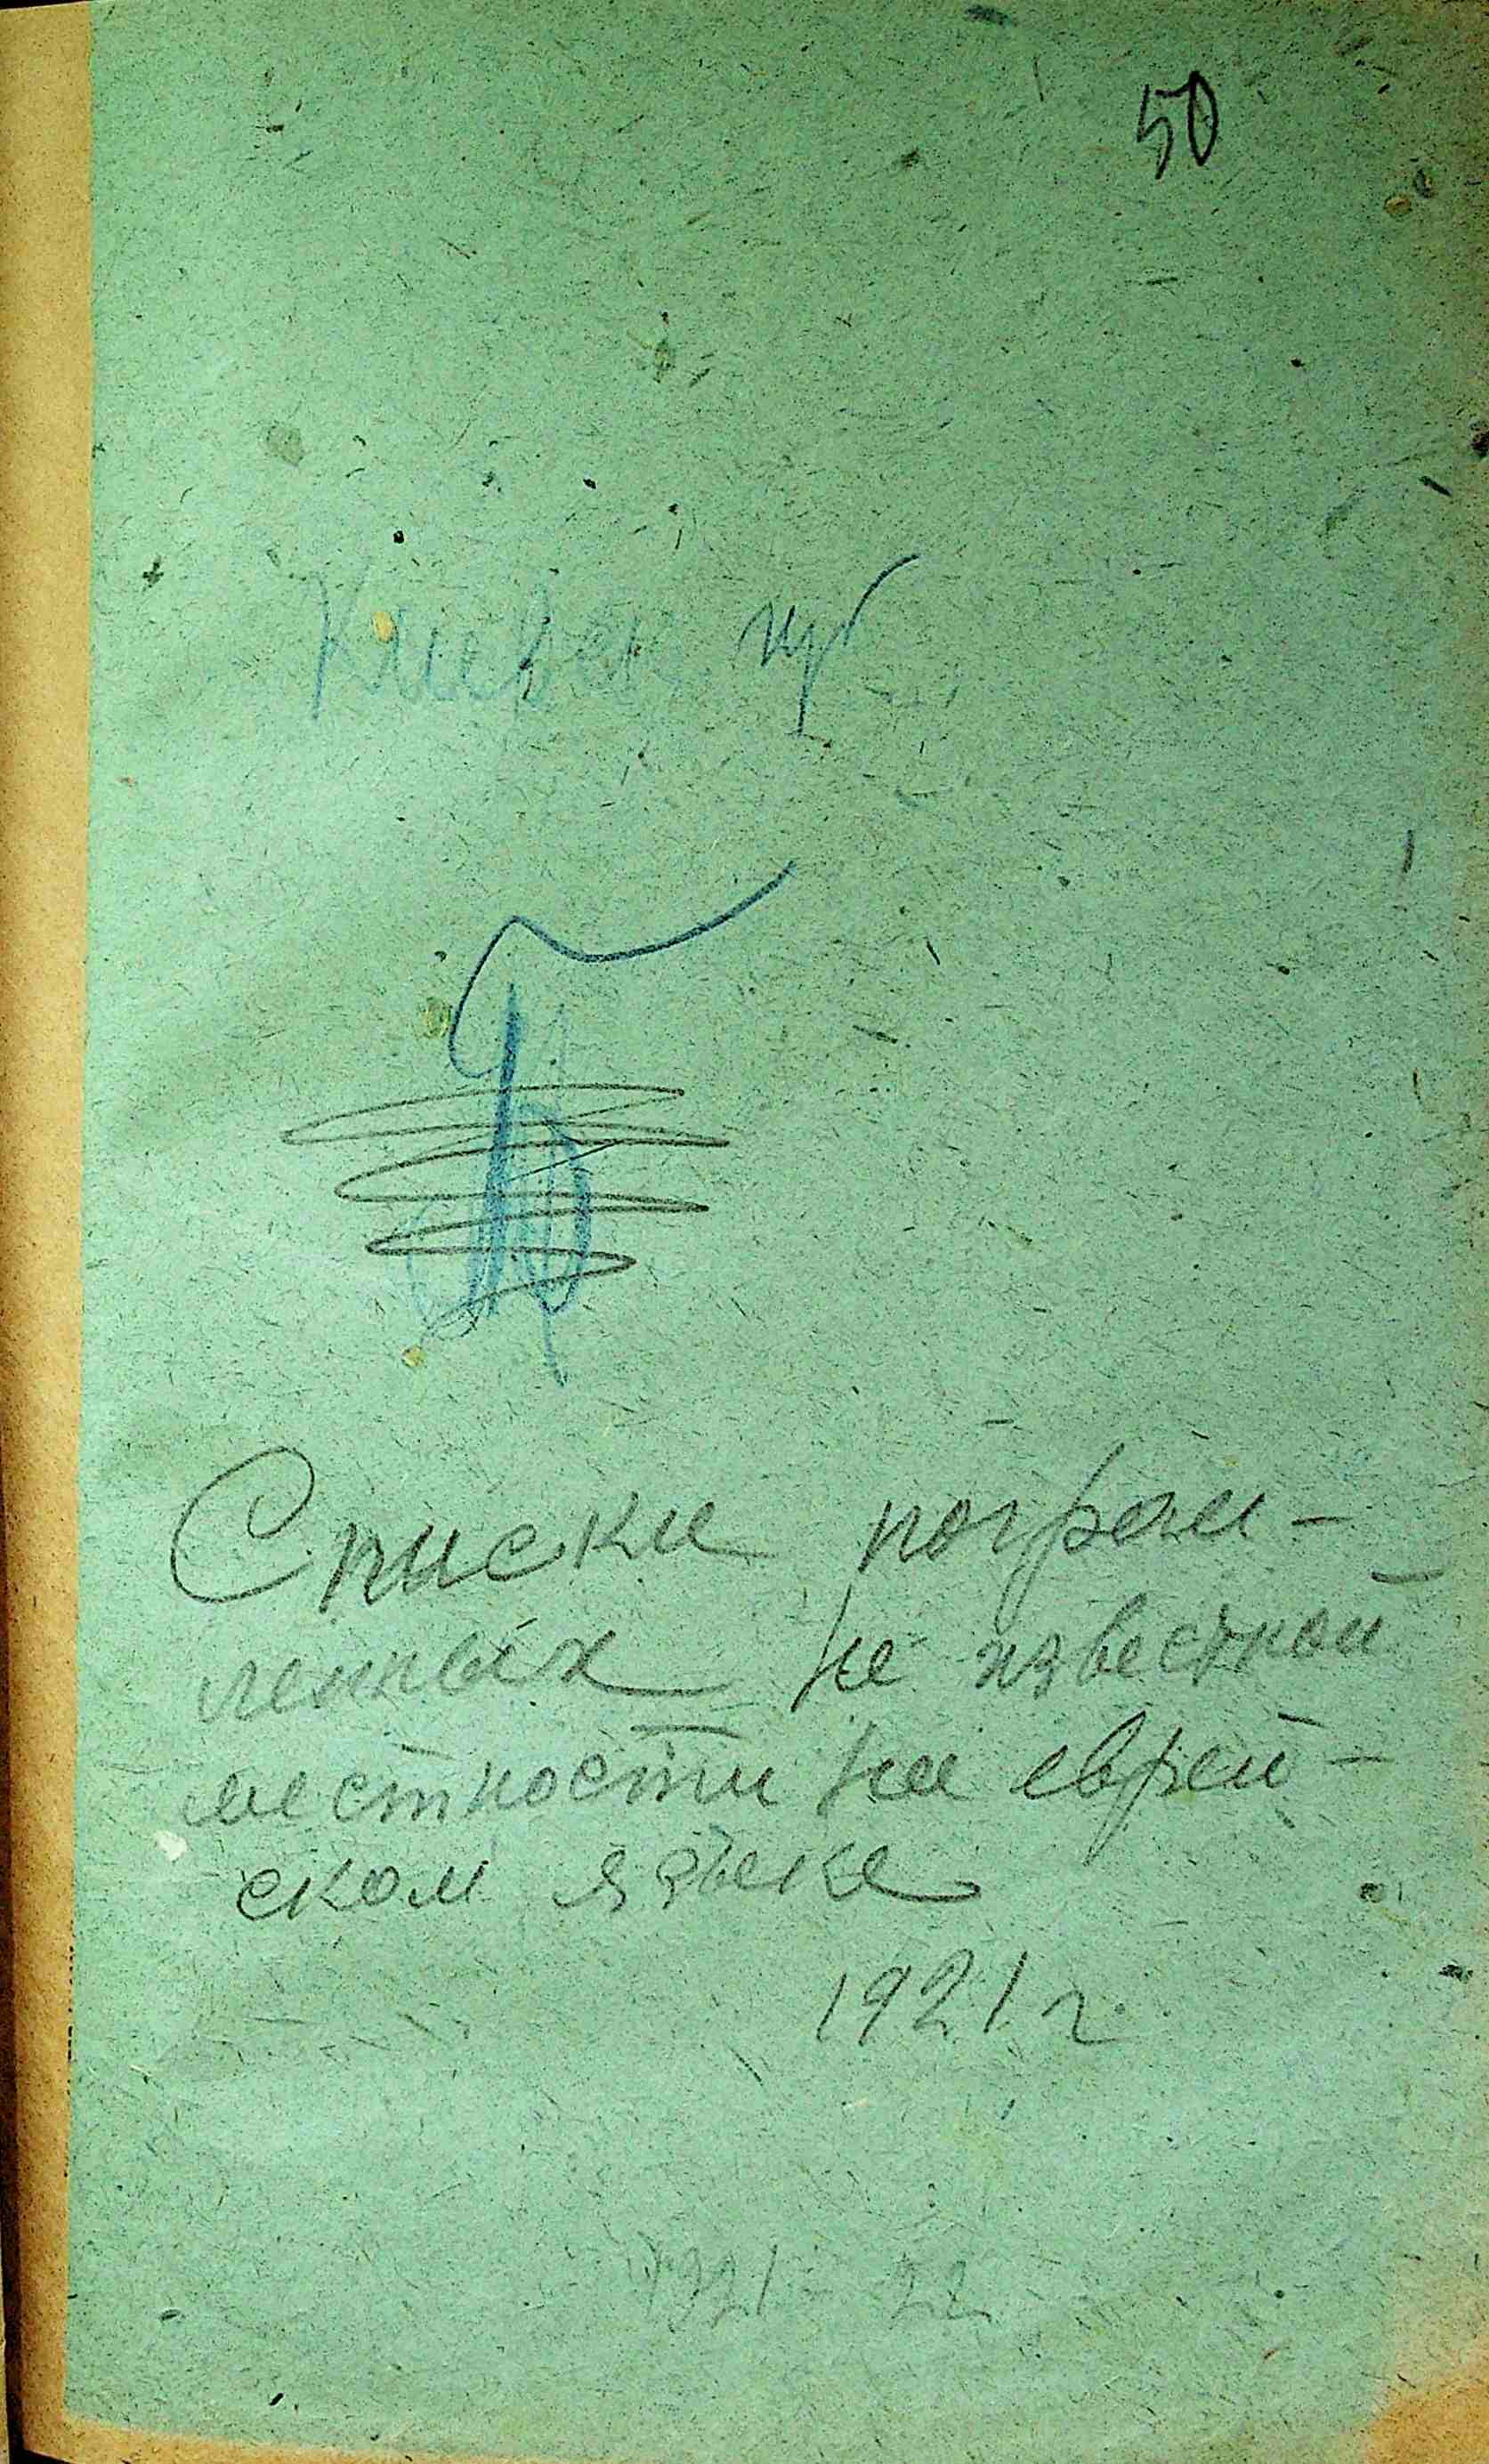 50
Киевск. губ
Списки погром-
ленных не известной
местности на еврей-
ском языке
1921 г.
1921-22